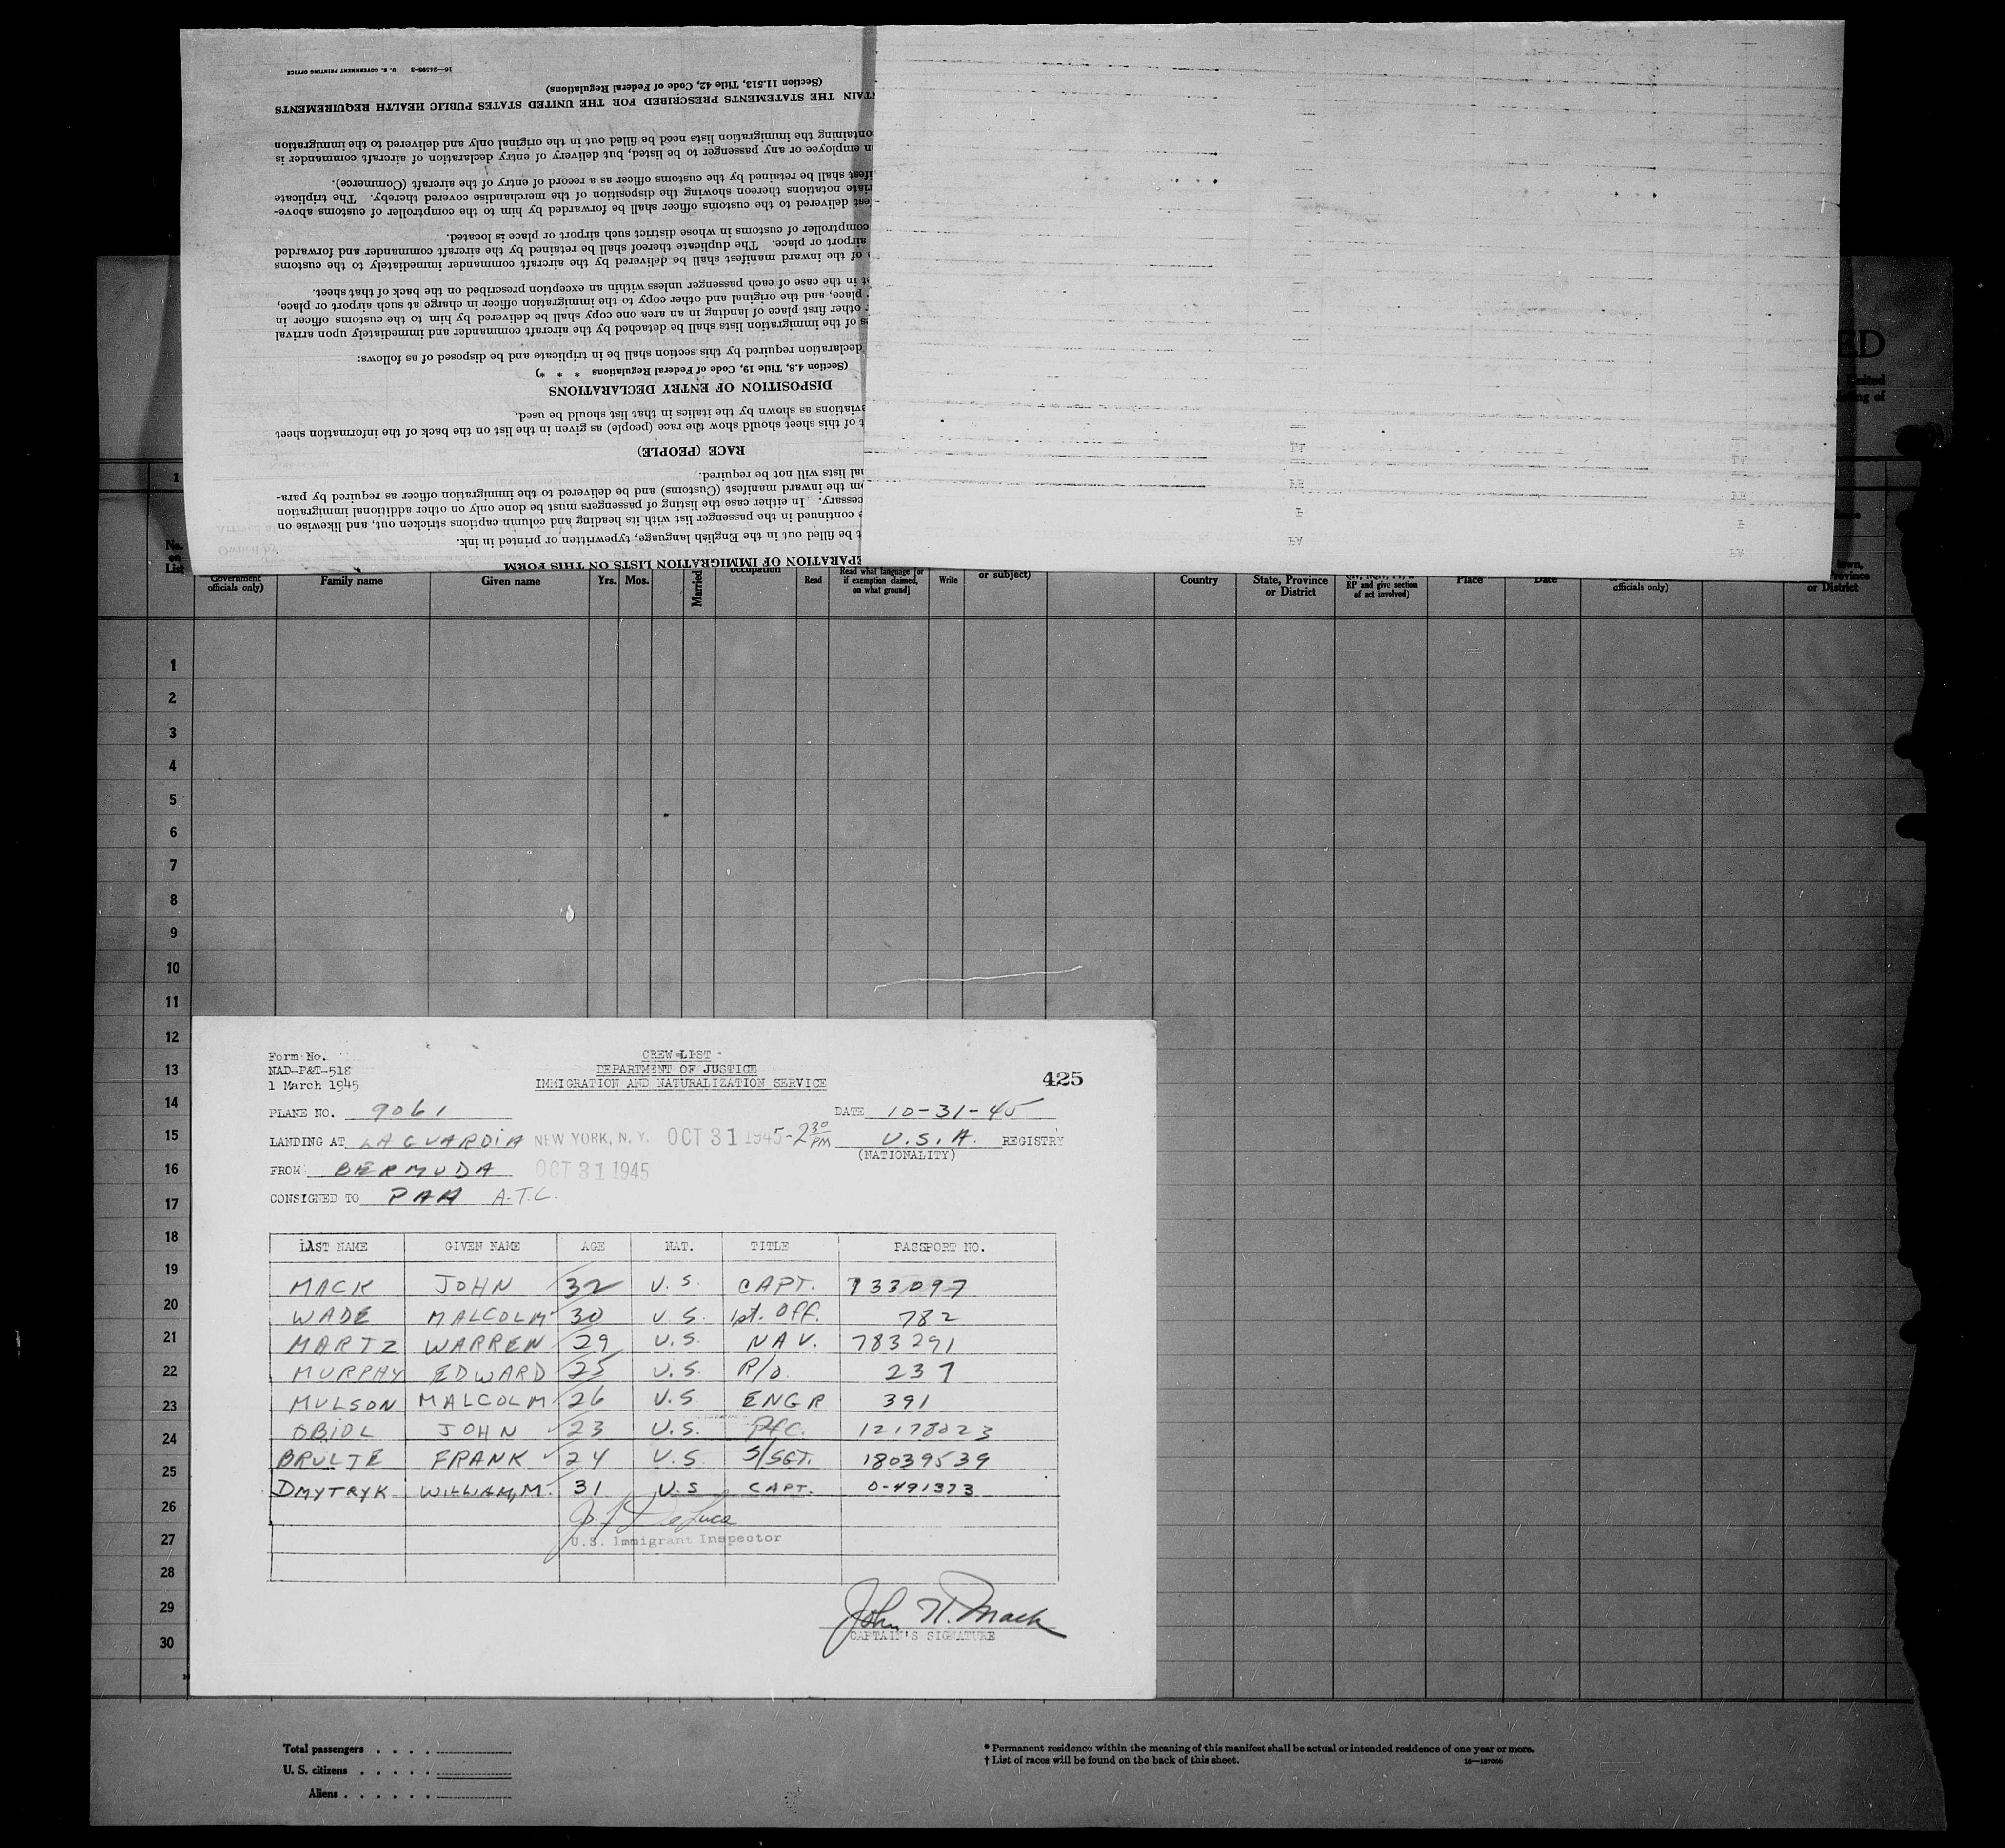 16—24598-3 U. S. GOVERNMENT PRINTING OFFICE
(Section 11.513, Title 42, Code of Federal Regulations)
THE STATEMENTS PRESCRIBED FOR THE UNITED STATES PUBLIC HEALTH REQUIREMENTS
containing the immigration lists need be filled out in the original only and delivered to the immigration
employee or any passenger to be listed, but delivery of entry declaration of aircraft commander is
shall be retained by the customs officer as a record of entry of the aircraft (Commerce).
notations thereon showing the disposition of the merchandise covered thereby. The triplicate
delivered to the customs officer shall be forwarded by him to the comptroller of customs above-
comptroller of customs in whose district such airport or place is located.
airport or place. The duplicate thereof shall be retained by the aircraft commander and forwarded
of the inward manifest shall be delivered by the aircraft commander immediately to the customs
in the case of each passenger unless within an exception prescribed on the back of that sheet.
place, and the original and other copy to the immigration officer in charge at such airport or place,
other first place of landing in an area one copy shall be delivered by him to the customs officer in
of the immigration lists shall be detached by the aircraft commander and immediately upon arrival
declaration required by this section shall be in triplicate and be disposed of as follows:
(Section 4.8, Title 19, Code of Federal Regulations * * *)
DISPOSITION OF ENTRY DECLARATIONS
as shown by the italics in that list should be used.
of this sheet should show the race (people) as given in the list on the back of the information sheet
RACE (PEOPLE)
lists will not be required.
the inward manifest (Customs) and be delivered to the immigration officer as required by para-
In either case the listing of passengers must be done only on other additional immigration
continued in the passenger list with its heading and column captions stricken out, and likewise on
be filled out in the English language, typewritten or printed in ink.
OF IMMIGRATION LISTS ON THIS FORM
ED
United
of
1
No. on List
Government officials only)
Family name
Given name
Yrs. Mos.
Married
occupation
Read
Read what language [or if exemption claimed, on what ground]
Write
or subject)
Country
State, Province or District
RP and give section of act involved)
Place
Date
officials only)
town, Province or District
1
2
3
4
5
6
7
8
9
10
11
12
13
14
15
16
17
18
19
20
21
22
23
24
25
26
27
28
29
30
Form No.
NAD-P&T-518
1 March 1945
CREW LIST
DEPARTMENT OF JUSTICE
IMMIGRATION AND NATURALIZATION SERVICE
425
PLANE NO. 9061 DATE 10-31-45
LANDING AT LAGUARDIA NEW YORK, N.Y. OCT 31 1945 - 2 30 PM U.S.A. REGISTRY
(NATIONALITY)
FROM BERMUDA OCT 31 1945
CONSIGNED TO PAA A.T.C.
LAST NAME GIVEN NAME AGE NAT. TITLE PASSPORT NO.
MACK JOHN 32 U.S. CAPT. 733097
WADE MALCOLM 30 U.S. 1st. Off. 782
MARTZ WARREN 29 U.S. NAV. 783291
MURPHY EDWARD 25 U.S. R/O. 237
MULSON MALCOLM 26 U.S ENGR 391
OBIDL JOHN 23 U.S. Pfc. 12178023
BRULTE FRANK 24 U.S S/SGT. 18039539
DMYTRYK WILLIAM, M. 31 U.S CAPT. 0-491373
U.S. Immigrant Inspector
John H. Mack
CAPTAIN'S SIGNATURE
Total passengers . . . .
U. S. citizens . . . . .
Aliens . . . . . .
* Permanent residence within the meaning of this manifest shall be actual or intended residence of one year or more.
† List of races will be found on the back of this sheet.